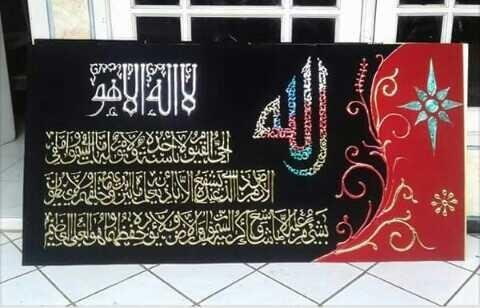 الله
لا اله الا هو
الحي القيوم لا تأخذه سنة ولا نوم له ما في السموات وما في
الارض من ذا الذي يشفع عنده الا باذنه يعلم ما بين ايديهم وما خلفهم ولا يحيطون
بشيء من علمه الا بما شاء وسع كرسيه السموات والارض ولا يؤده حفظهما وهو العلي العظيم